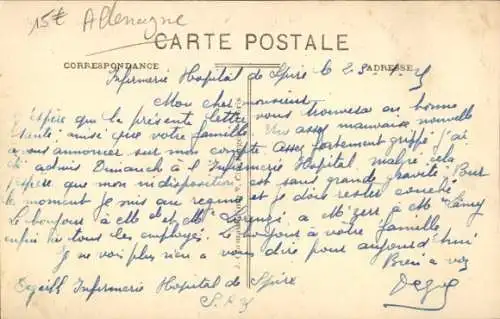 15€ Allemagne
CARTE POSTALE
CORRESPONDANCE ADRESSE
Infirmerie Hopital de Spire le 23
Mon cher monsieur
J'espère que la présente lettre vous trouvera en bonne
santé ainsi que votre famille. assez mauvaise nouvelle
a vous annoncer sur mon compte assez fortement grippé j'ai
été admis Dimanch à l Infirmerie Hopital, malgré cela
j'espère que mon indisposition est sans grande gravité. Pour
le moment je suis au regime et je dois rester couché
Le bonjour à Mr et Mme Lorenzi a Mr a Mr
enfin à tous les employés. Le bonjour à votre famille
Je ne vois plus rien a vous dire pour aujourd'hui
Bien a vous
Infirmerie Hopital de Spire
S.P.